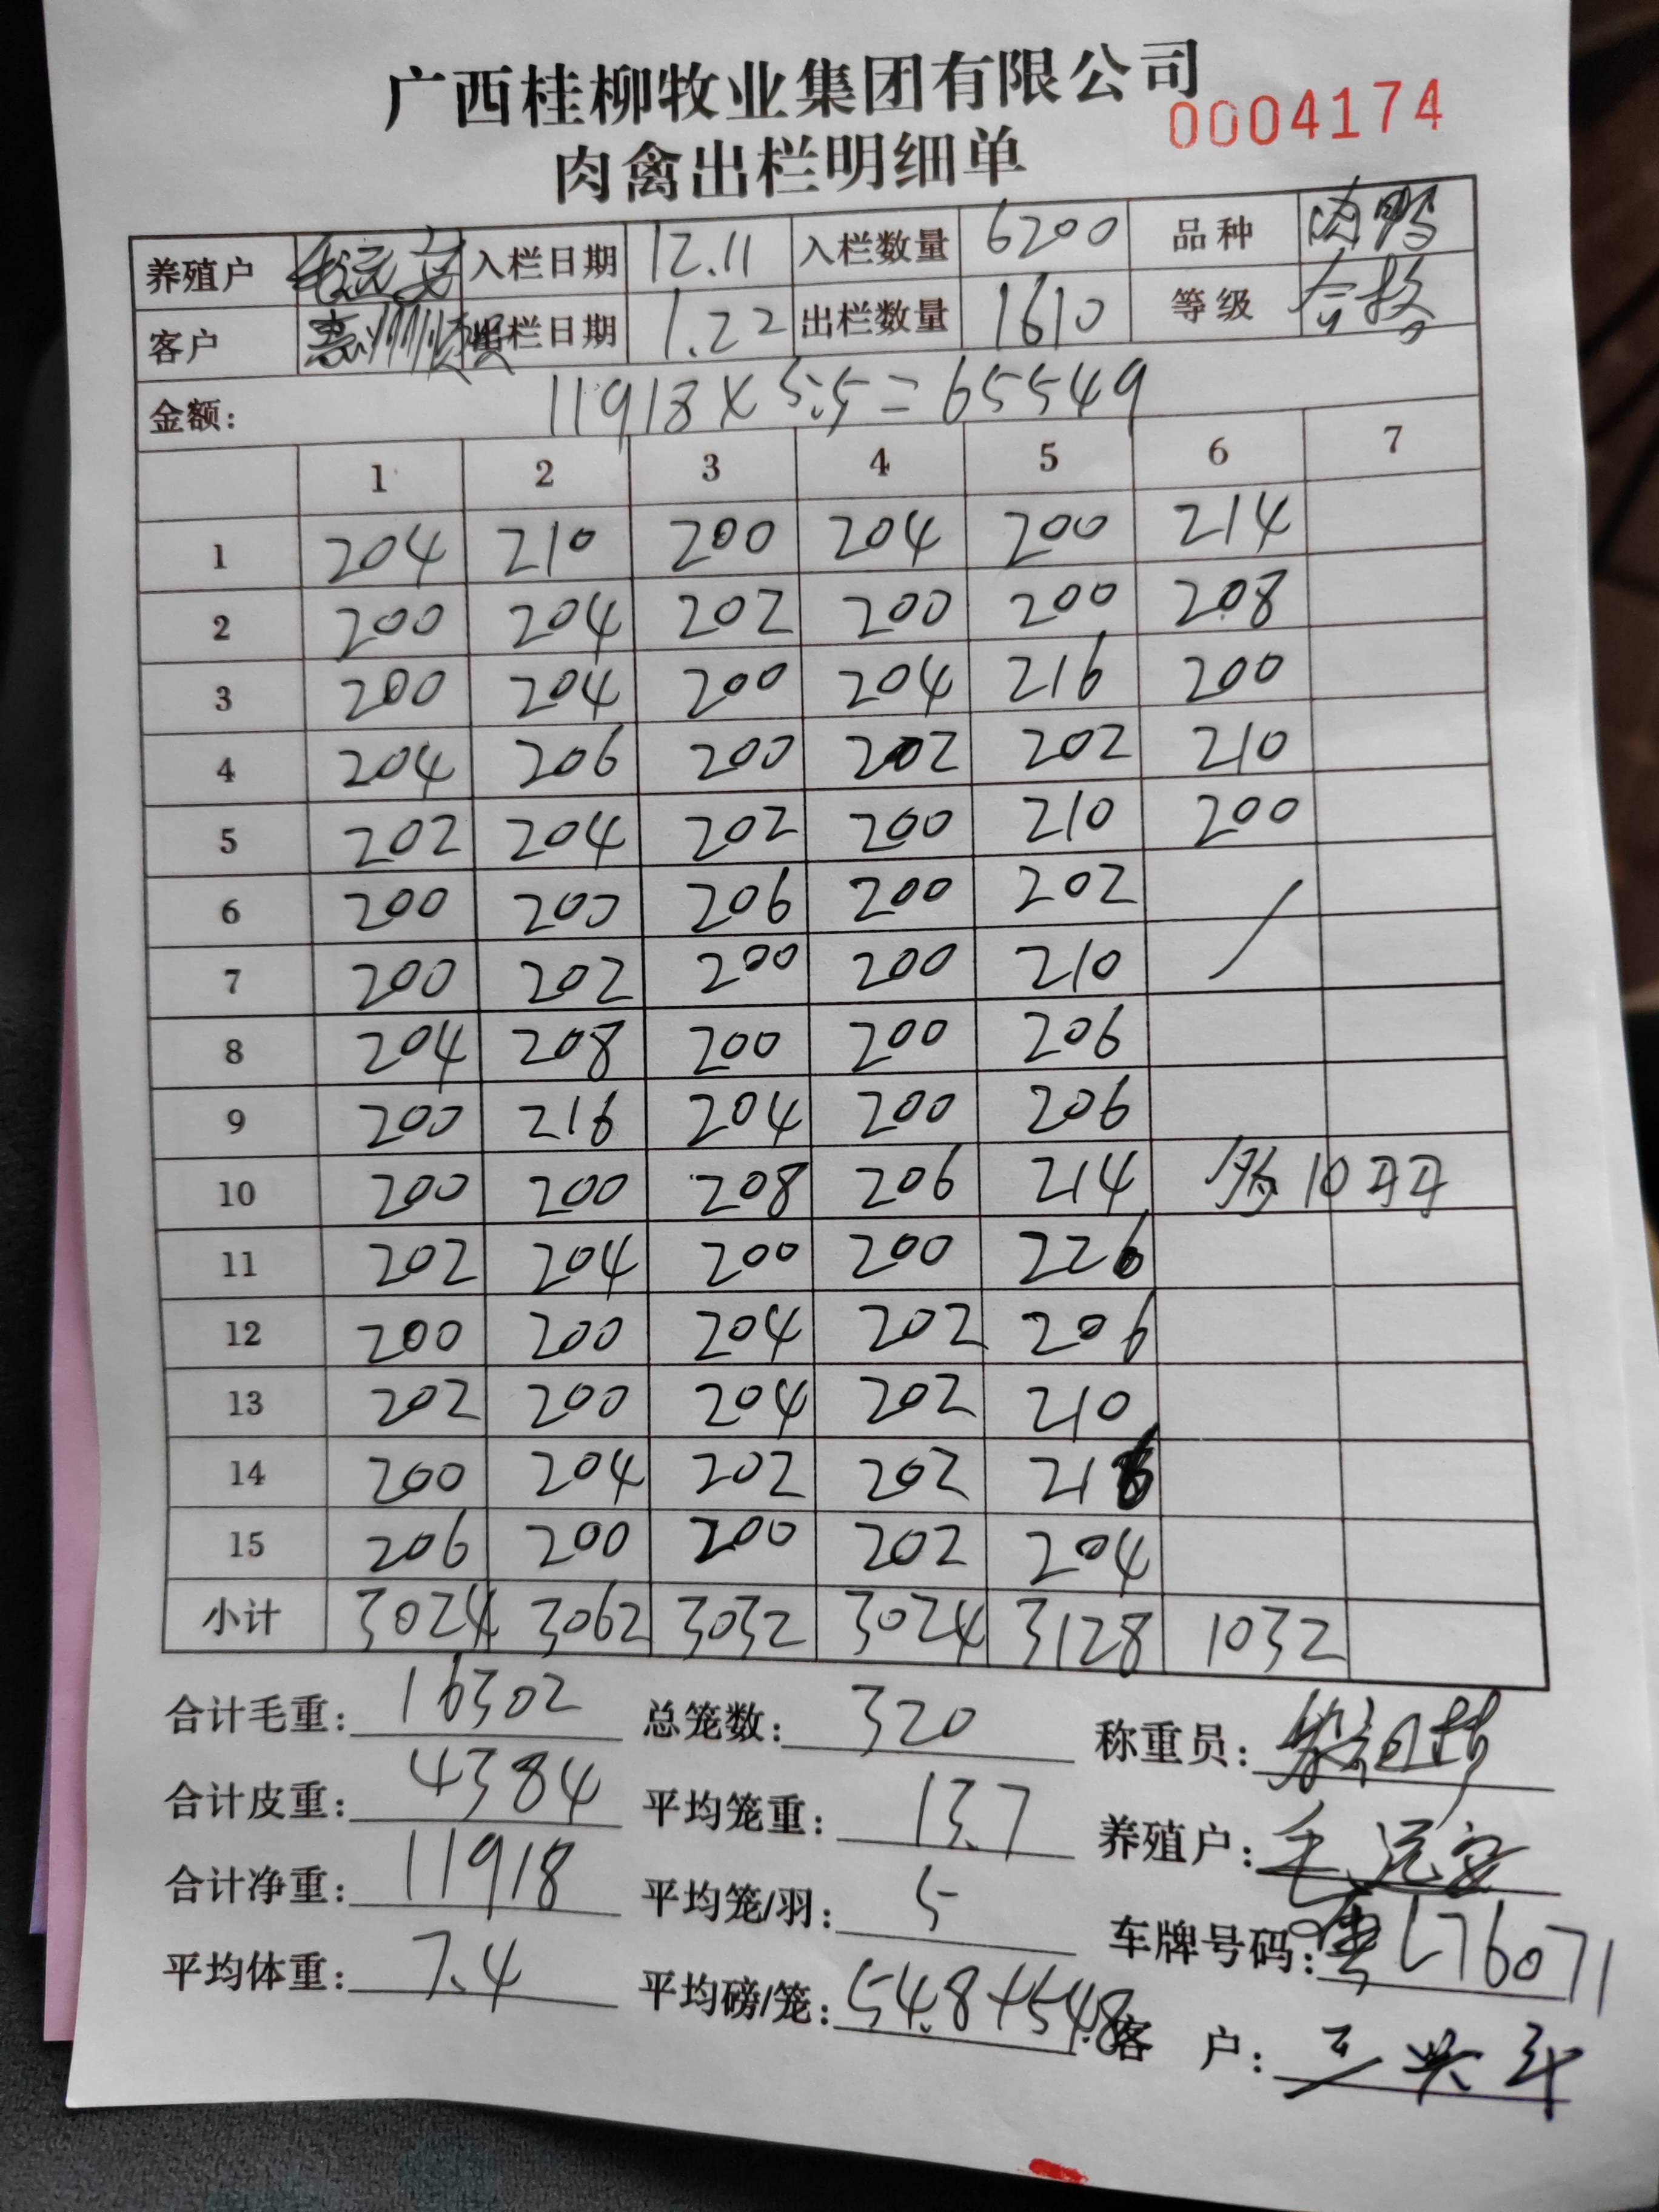 广西桂柳牧业集团有限公司
0004174
肉禽出栏明细单
养殖户 毛远安 入栏日期 12.11 入栏数量 6200 品种 肉鸭
客户 惠州顺 出栏日期 1.22 出栏数量 1610 等级 合格
金额: 11918×5.5=65549
1 2 3 4 5 6 7
1 204 210 200 204 200 214
2 200 204 202 200 200 208
3 200 204 200 204 216 200
4 204 206 200 202 202 210
5 202 204 202 200 210 200
6 200 200 206 200 202
7 200 202 200 200 210
8 204 208 200 200 206
9 200 216 204 200 206
10 200 200 208 206 214 10
11 202 204 200 200 226
12 200 200 204 202 206
13 202 200 204 202 210
14 200 204 202 202 216
15 206 200 200 202 204
小计 3024 3062 3032 3024 3128 1032
合计毛重: 16302 总笼数: 320 称重员:
合计皮重: 4384 平均笼重: 13.7 养殖户: 毛远安
合计净重: 11918 平均笼/羽: 5 车牌号码: L76071
平均体重: 7.4 平均磅/笼: 54.8+54.8 客户: